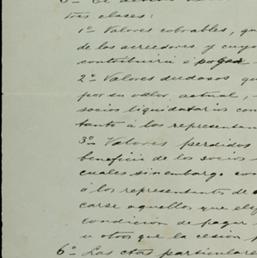 tres clases:
1º Valores cobrables, qu
de los acreedores y cuyo
contribuirá á pagar
2º Valores dudosos que
por su valor actual,
socios liquidatarios con
tanto á los representan
3º Valores perdidos
beneficio de los socios
cuales sin embargo con
á los representantes de
carse aquellos que eli
condición de pagar
u otros que la cesión p
6º Las ctas particulares